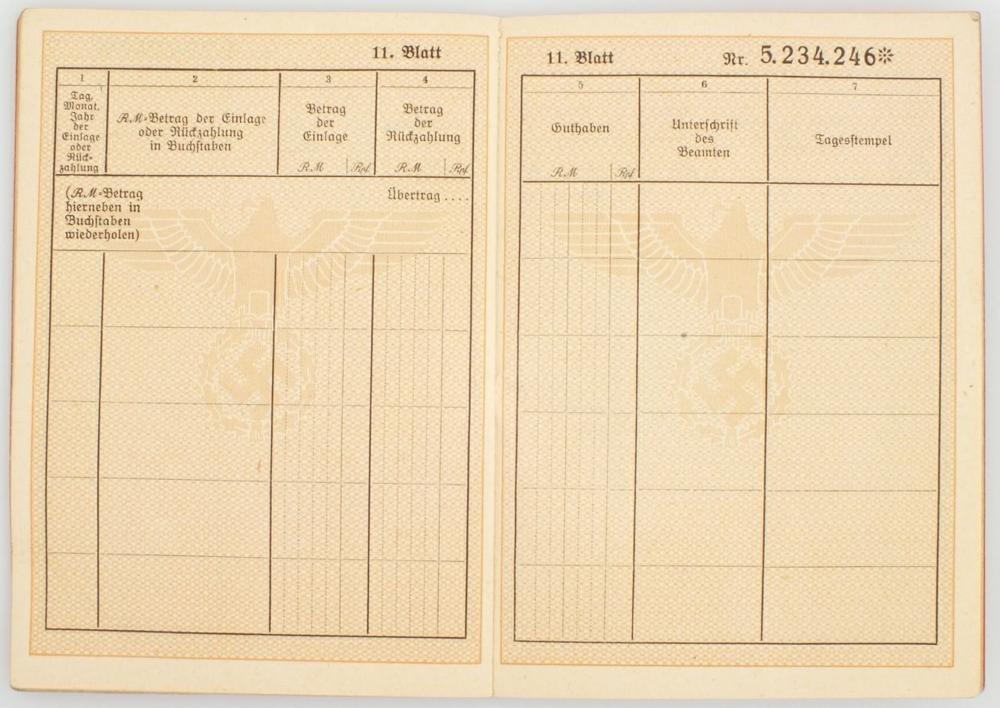 11. Blatt
1
2
3
4
Tag,
Monat,
Jahr
der
Einlage
oder
Rück-
zahlung
RM=Betrag der Einlage
oder Rückzahlung
in Buchstaben
Betrag
der
Einlage
RM Rpf
Betrag
der
Rückzahlung
RM Rpf
(RM=Betrag
hierneben in
Buchstaben
wiederholen)
Übertrag ....
11. Blatt Nr. 5.234.246*
5
6
7
Guthaben
RM Rpf
Unterschrift
des
Beamten
Tagesstempel